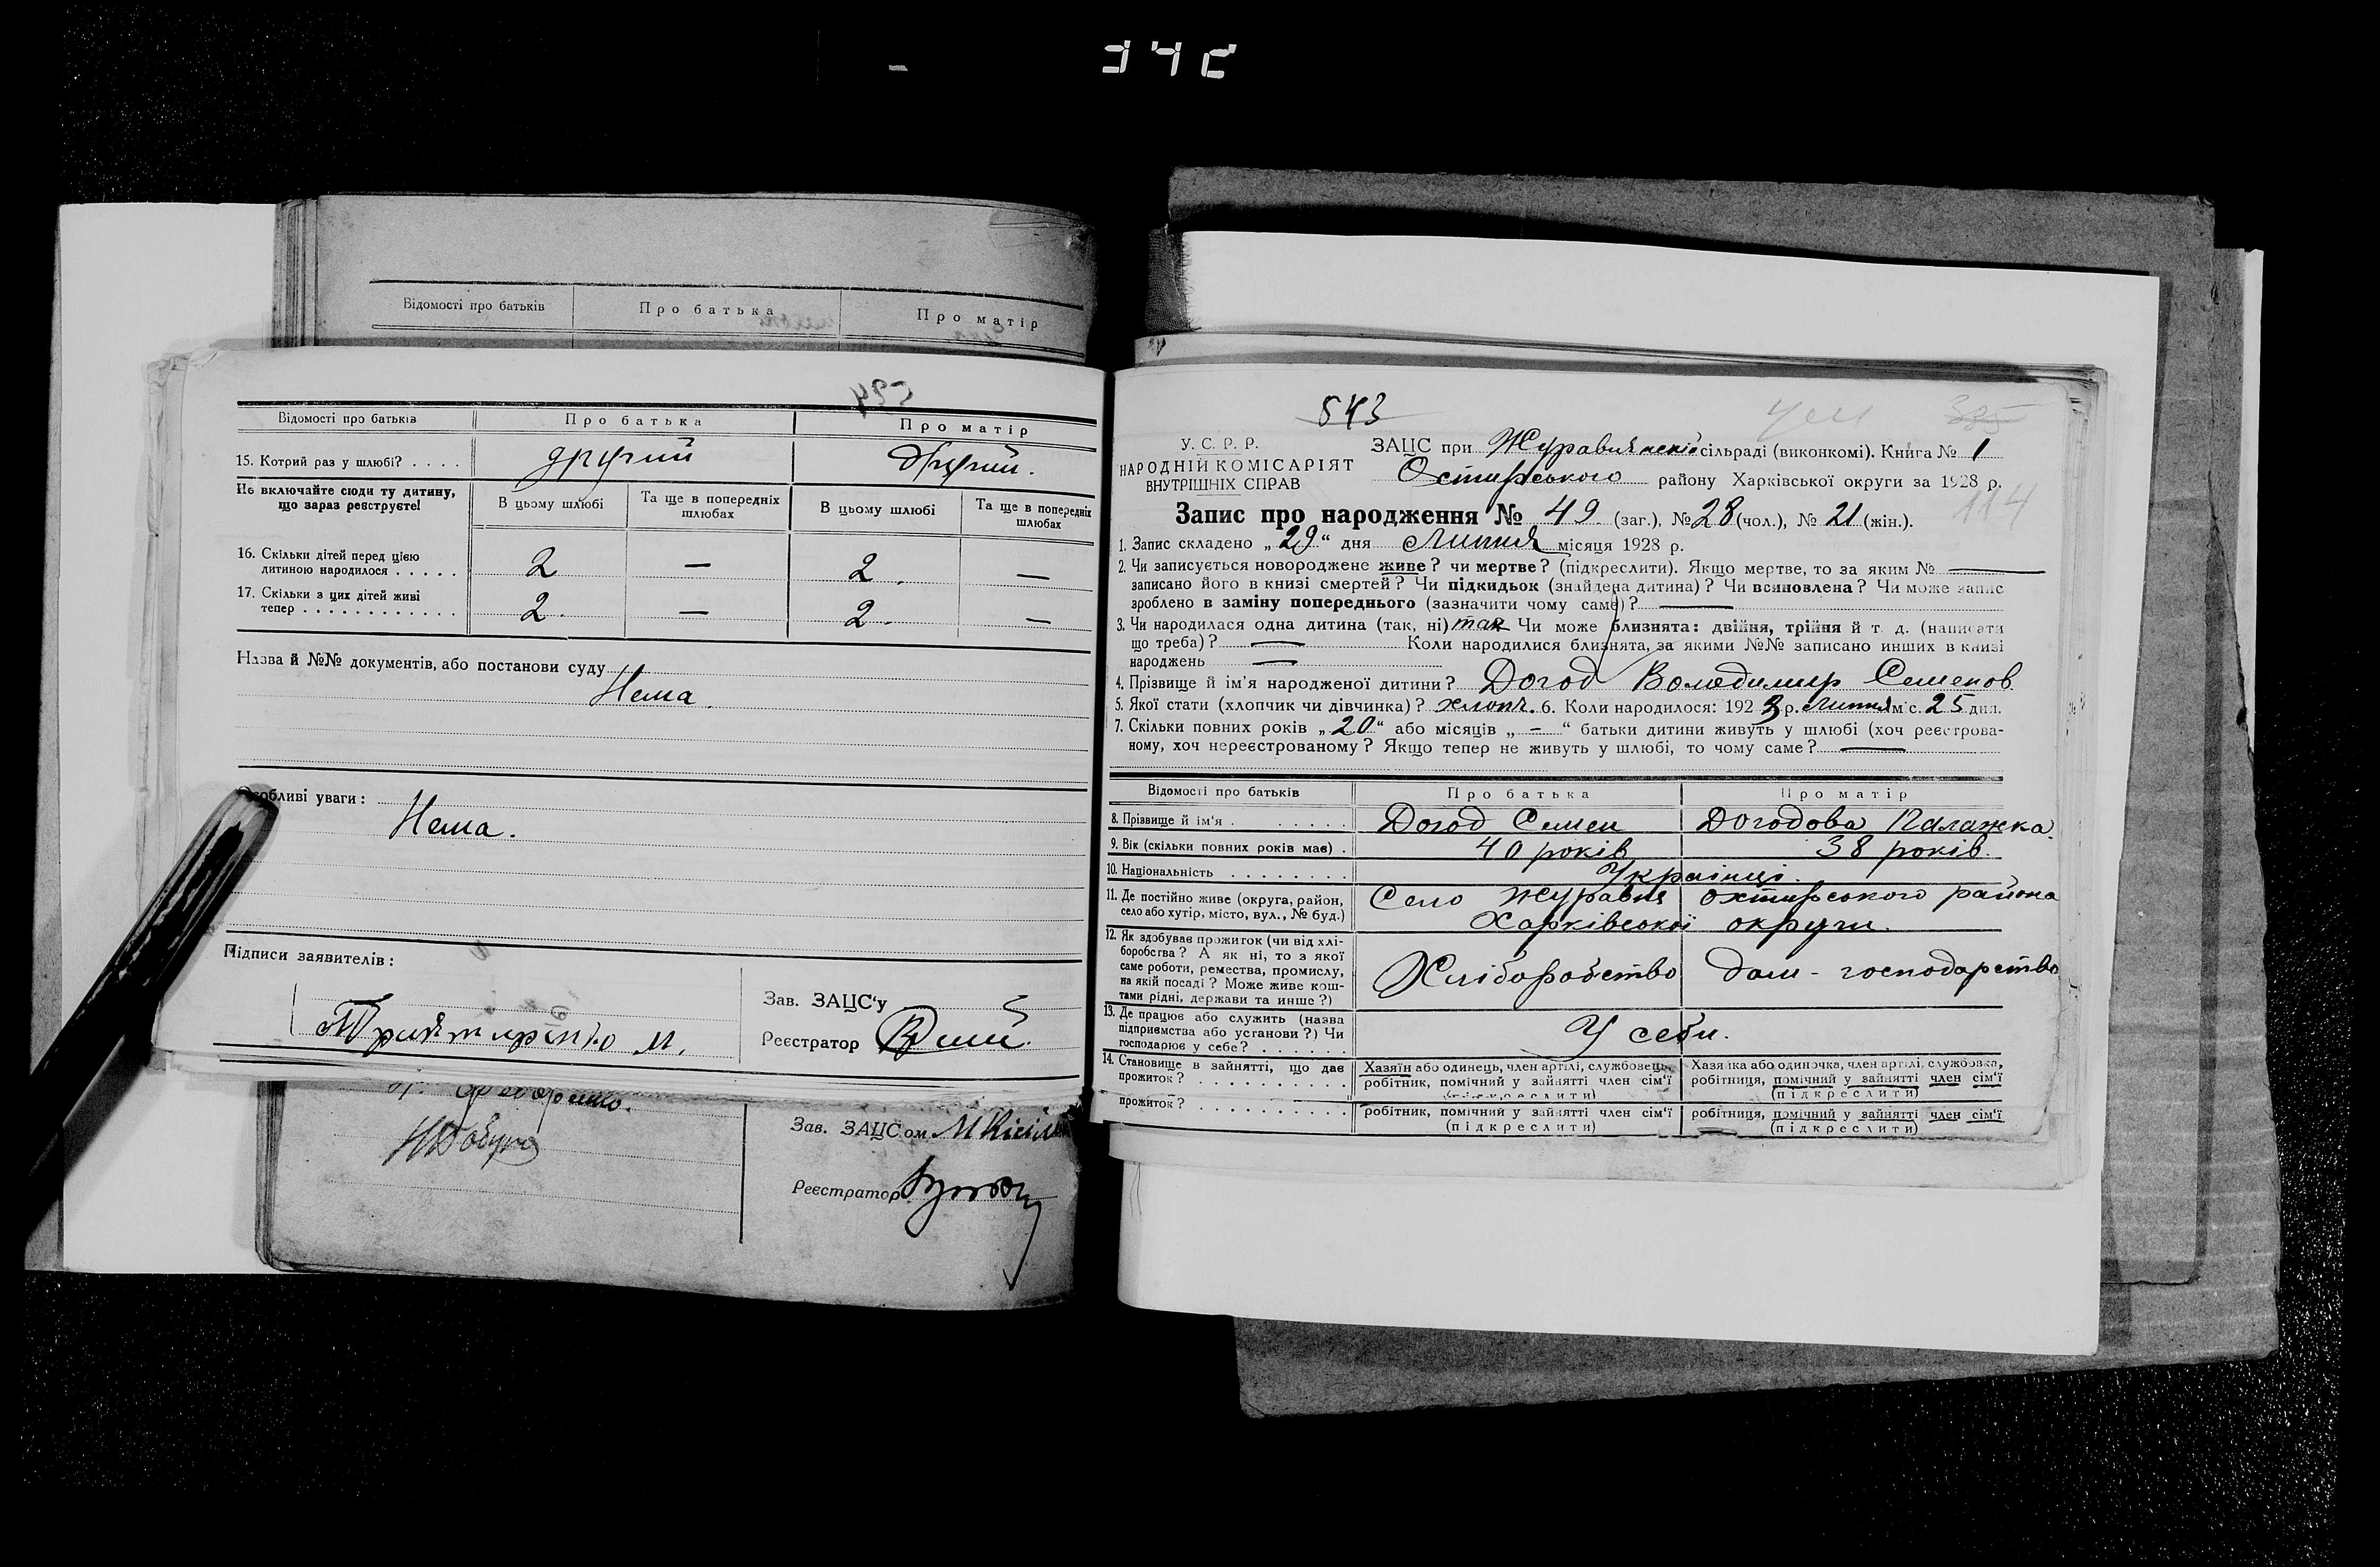 342
Відомості про батьків Про батька Про матір
Відомості про батьків Про батька Про матір
15. Котрий раз у шлюбі? . . . . другий другий.
Не включайте сюди ту дитину, що зараз реєструєте!
В цьому шлюбі Та ще в попередніх шлюбах В цьому шлюбі Та ще в попередніх шлюбах
16. Скільки дітей перед цією
дитиною народилося . . . . . 2 — 2. —
17. Скільки з цих дітей живі
тепер . . . . . . . . . . . . . 2. — 2. —
Назва й №№ документів, або постанови суду
Нема.
Особливі уваги:
Нема.
Підписи заявителів:
Зав. ЗАЦС'у
Реєстратор
Зав. ЗАЦСом
Реєстратор
543
385
У. С. Р. Р.
НАРОДНІЙ КОМІСАРІЯТ
ВНУТРІШНІХ СПРАВ
ЗАЦС при сільраді (виконкомі). Книга № 1
району Харківської округи за 1928 р.
114
Запис про народження № 49 (заг.), № 28 (чол.), № 21 (жін.).
1. Запис складено „29“ дня Липня місяця 1928 р.
2. Чи записується новороджене живе? чи мертве? (підкреслити). Якщо мертве, то за яким № —
записано його в книзі смертей? Чи підкидьок (знайдена дитина)? Чи всиновлена? Чи може запис
зроблено в заміну попереднього (зазначити чому саме)? —
3. Чи народилася одна дитина (так, ні) так Чи може близнята: двійня, трійня й т. д. (написати
що треба)? — Коли народилися близнята, за якими №№ записано инших в книзі
народжень —
4. Прізвище й ім'я народженої дитини? Догод Володимир Семенов
5. Якої стати (хлопчик чи дівчинка)? хлопч. 6. Коли народилося: 1928 р. липня міс. 25 дня.
7. Скільки повних років „20“ або місяців „–“ батьки дитини живуть у шлюбі (хоч реєстрова-
ному, хоч нереєстрованому? Якщо тепер не живуть у шлюбі, то чому саме? —
Відомості про батьків Про батька Про матір
8. Прізвище й ім'я . . . . . . . Догод Семен Догодова Палажка
9. Вік (скільки повних років має) . 40 років 38 років.
10. Національність . . . . . . . . Українці.
11. Де постійно живе (округа, район,
село або хутір, місто, вул., № буд.)
Село Журавня охтирського района
Харківської округи.
12. Як здобуває прожиток (чи від хлі-
боробства? А як ні, то з якої
саме роботи, ремества, промислу,
на якій посаді? Може живе кош-
тами рідні, держави та инше?)
Хліборобство дом-господарство
13. Де працює або служить (назва
підприємства або установи?) Чи
господарює у себе? . . . . . .
У себи.
14. Становище в зайнятті, що дає
прожиток? . . . . . . . . . . .
Хазяїн або одинець, член артілі, службовець,
робітник, помічний у зайнятті член сім'ї
(підкреслити)
Хазяйка або одиночка, член артілі, службовка,
робітниця, помічний у зайнятті член сім'ї
(підкреслити)
прожиток? . . . . . . . . . . .
робітник, помічний у зайнятті член сім'ї
(підкреслити)
робітниця, помічний у зайнятті член сім'ї
(підкреслити)